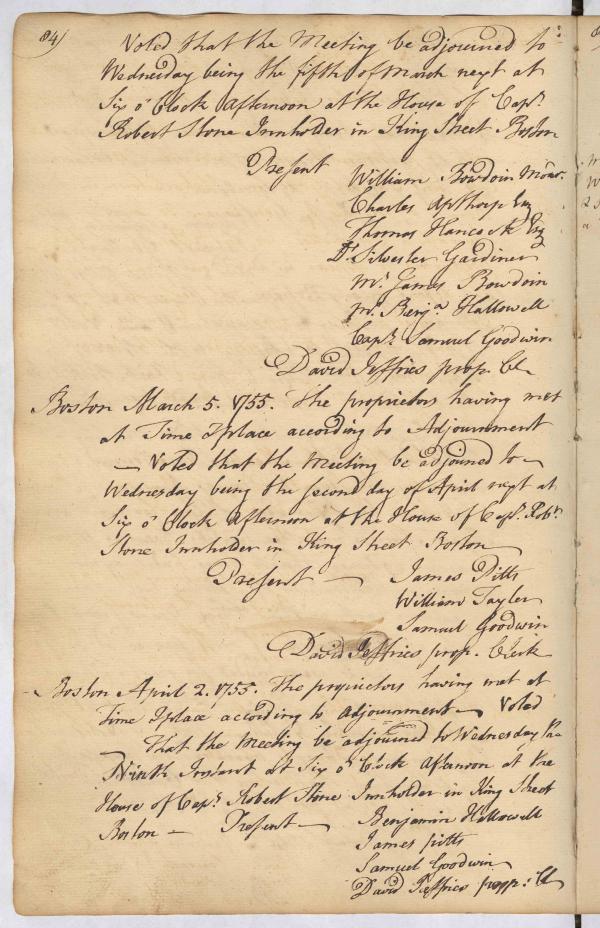 84)
Voted that the Meeting be adjourned to
Wednesday being the fifth of March next at
Six o'Clock afternoon at the House of Capt.
Robert Stone Innholder in King Street Boston
Present
William Bowdoin Moder.
Charles Apthorp Esq
Thomas Hancock Esq
Dr. Silvester Gardiner
Mr. James Bowdoin
Mr. Benja. Hallowell
Capt. Samuel Goodwin
David Jeffries prop. Cl
Boston March 5. 1755. The proprietors having met
at Time & place according to Adjournment
— Voted that the Meeting be adjoined to
Wednesday being the second day of April next at
Six o'Clock afternoon at the House of Capt. Robt.
Stone Innholder in King Street Boston
Present — James Pitts
William Tayler
Samuel Goodwin
David Jeffries prop. Clerk
Boston April 2. 1755. The proprietors having met at
Time & place according to adjournment — Voted
That the Meeting be adjourned to Wednesday the
Ninth Instant at Six o'Clock afternoon at the
House of Capt. Robert Stone Innholder in King Street
Boston — Present — Benjamin Hallowell
James pitts
Samuel Goodwin
David Jeffries propr. Cl